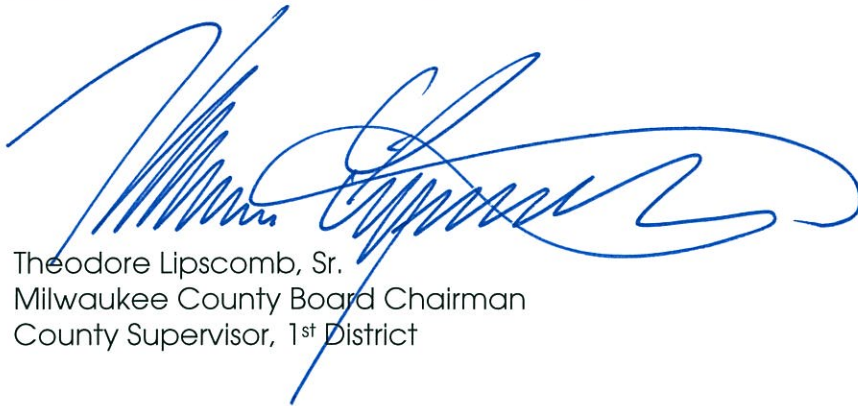 Theodore Lipscomb, Sr.
Milwaukee County Board Chairman
County Supervisor, 1st District